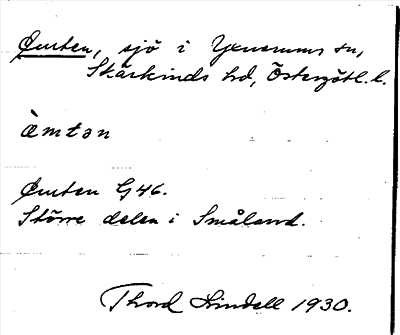 Ömten, sjö i Yxnerums sn,
Skärkinds hd, Östergötl. l.
æ̀mtən
Ömten G46.
Större delen i Småland.
Thord Lindell 1930.